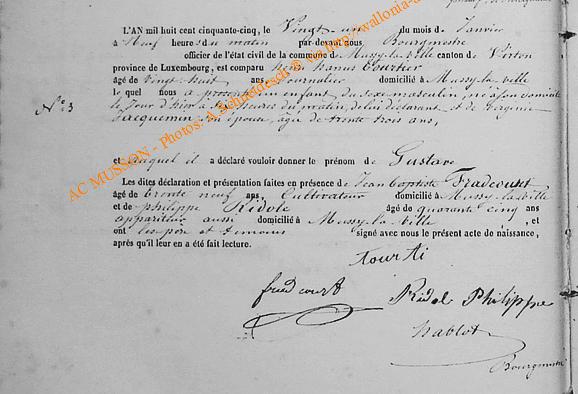 L'AN mil huit cent cinquante-cinq, le Vingt-un du mois de Janvier
à Neuf heures du matin par-devant nous Bourgmestre
officier de l'état civil de la commune de Mussy-la-ville canton de Virton
province de Luxembourg, est comparu Courtin
âgé de Vingt huit ans Journalier domicilié à Mussy-la-ville
le quel nous a présenté un enfant du sexe masculin, né à son domicile
le Jour d'hier à heures du matin, de lui déclarant et de Virginie
N° 3
Jacquemin son épouse, âgée de trente trois ans,
et auquel il a déclaré vouloir donner le prénom de Gustave
Les dites déclaration et présentation faites en présence de Jean Baptiste Fradcourt
âgé de trente neuf ans, Cultivateur domicilié à Mussy-la-ville
et de philippe Ridole âgé de quarante cinq ans
appariteur aussi domicilié à Mussy-la-ville, et
ont les père et témoins signé avec nous le présent acte de naissance,
après qu'il leur en a été fait lecture.
fradcourt
Ridol Philippe
Nablot
Bourgmestre
AC MUSSON - Photos: A Schneidesch © via http://wallonia-a